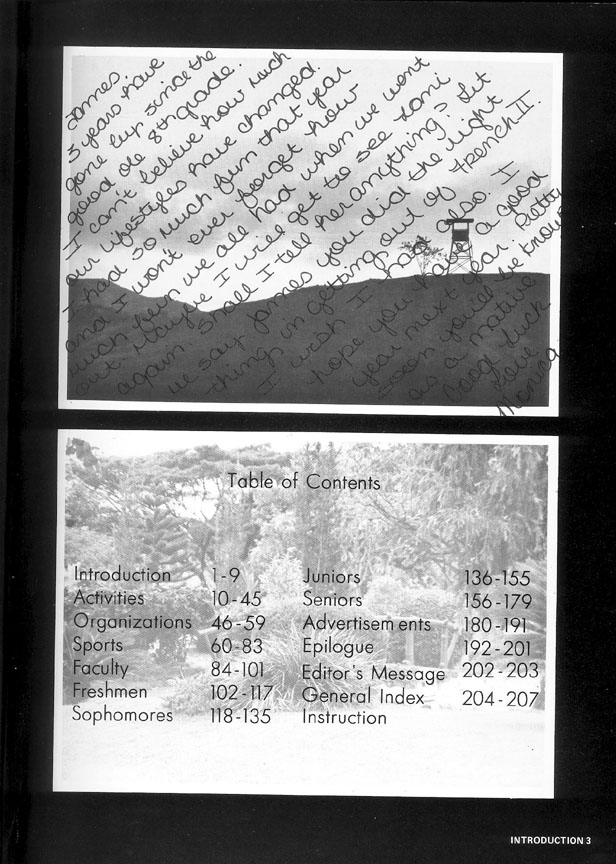 James,
3 years have
gone bup since the
good ole 8th grade.
I can't believe how much
our lifestyles have changed.
I had so much fun that year
and I won't ever forget how
much fun we all had when we went
out. Maybe I will get to see Lami
again. Shall I tell her anything? But
we say James you did the right
thing in getting out of French II.
I wish I had also. I
hope you have a good
year next year. Pretty
soon you'll be known
as a native
Good luck
Love
Monica
Table of Contents
Introduction 1-9
Activities 10-45
Organizations 46-59
Sports 60-83
Faculty 84-101
Freshmen 102-117
Sophomores 118-135
Juniors 136-155
Seniors 156-179
Advertisem ents 180-191
Epilogue 192-201
Editor's Message 202-203
General Index 204-207
Instruction
INTRODUCTION 3